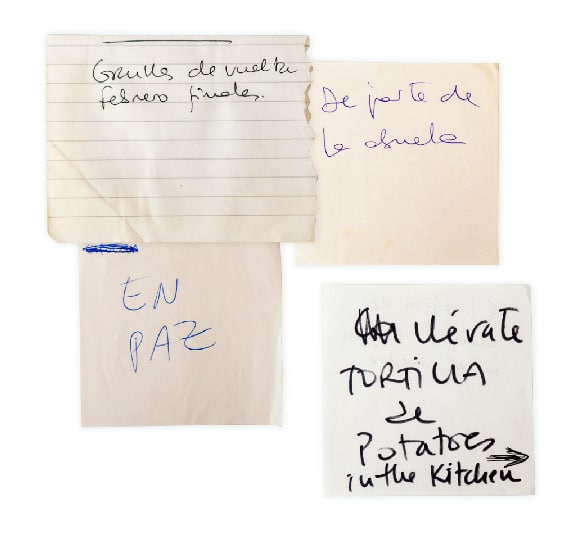 Grullas de vuelta
febrero finales.
De parte de
la abuela
EN
PAZ
llévate
TORTILLA
de
Potatoes
in the Kitchen